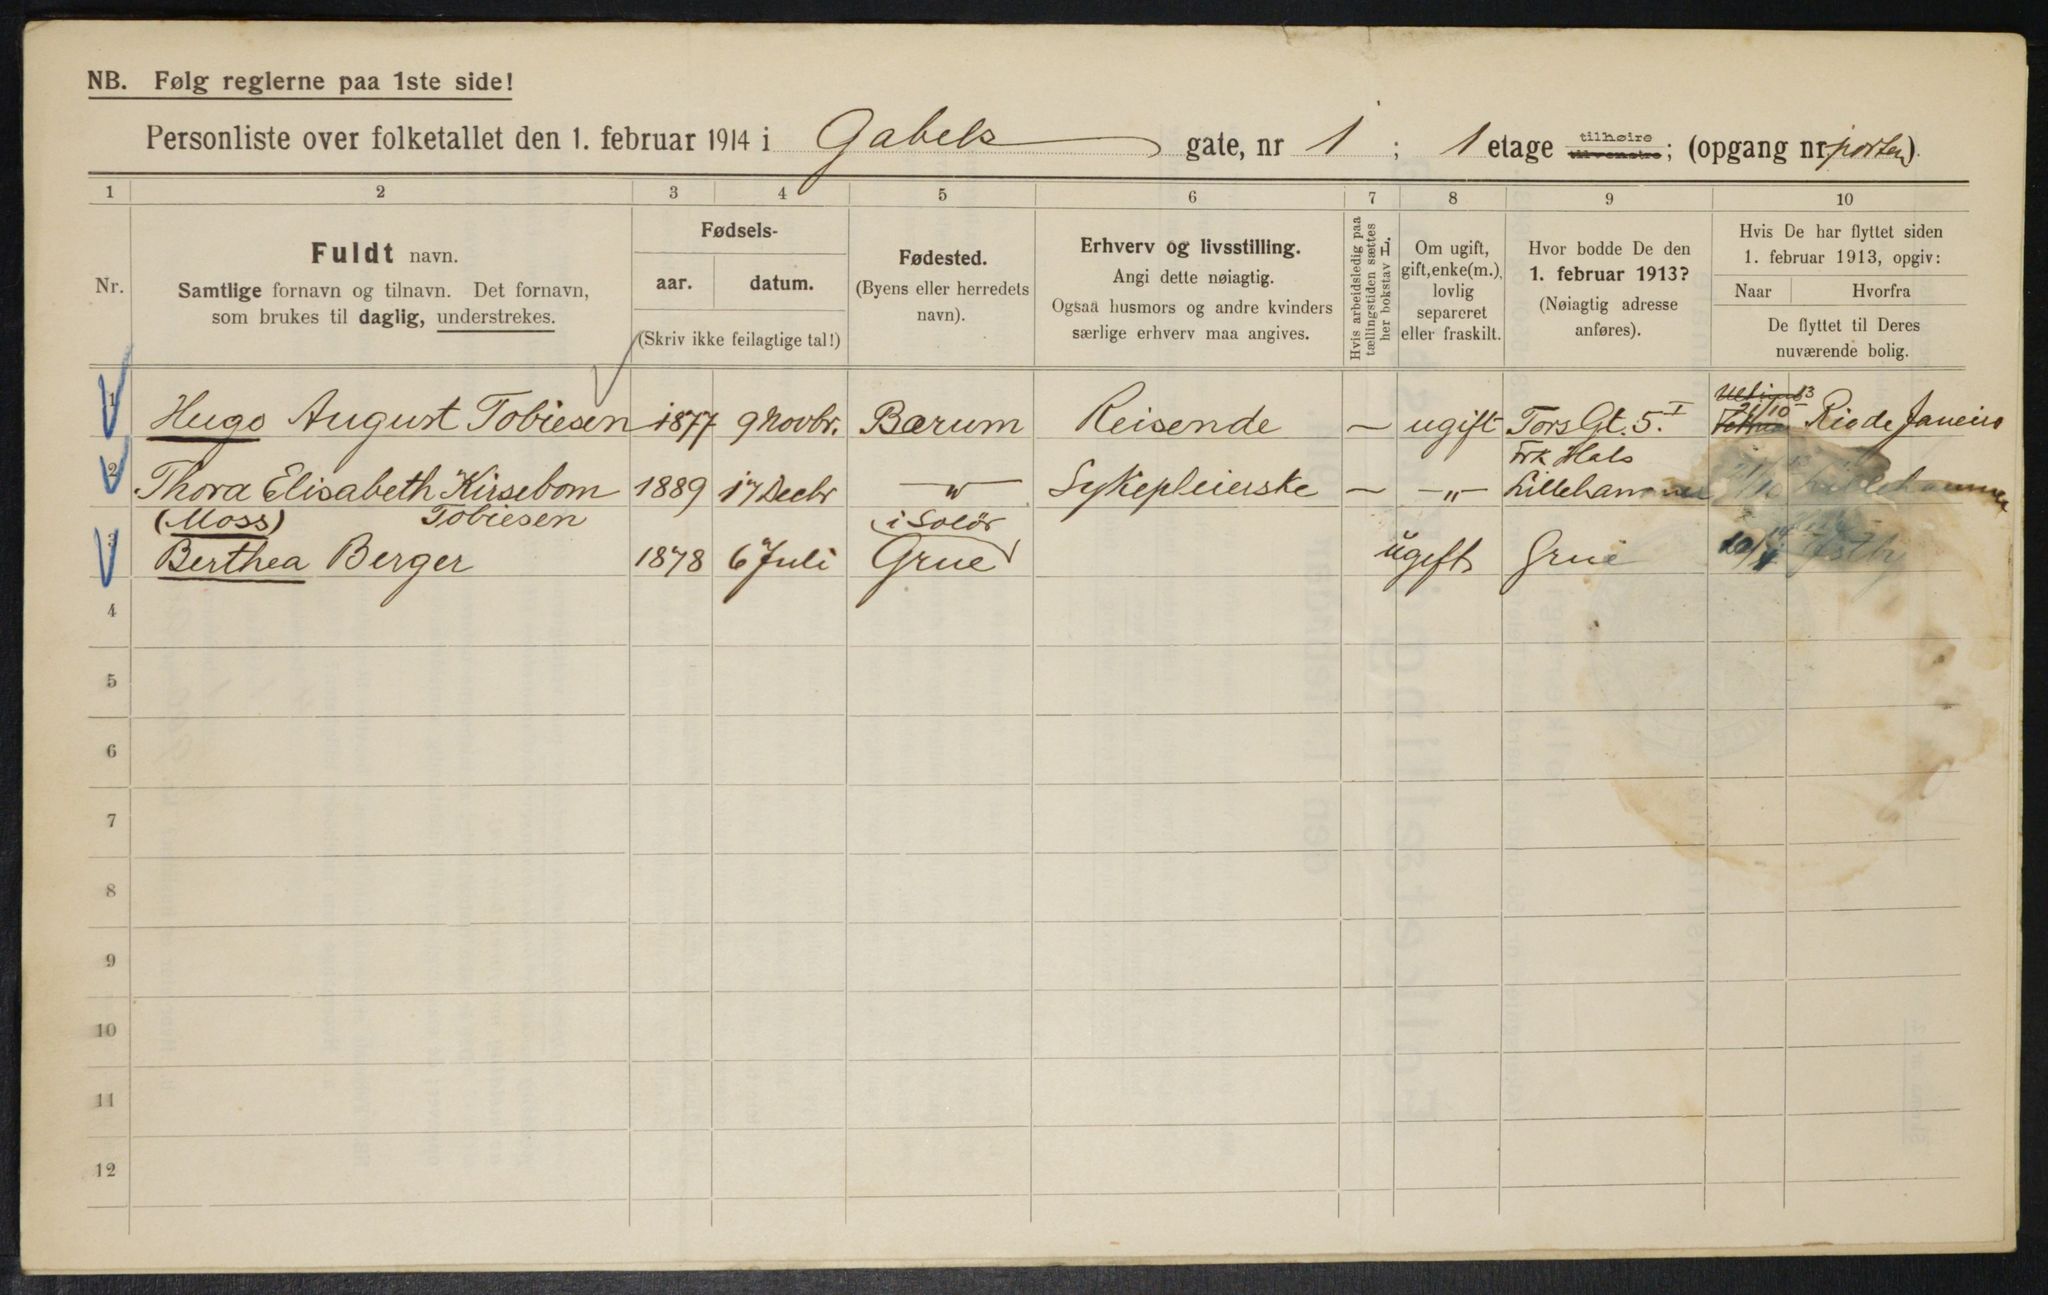 NB. Følg reglerne paa 1ste side!
Personliste over folketallet den 1. februar 1914 i Gabels gate, nr 1; 1 etage tilhøire tilvenstre; (opgang nr porten).
1 2 3 4 5 6 7 8 9 10
Nr.
Fuldt navn.
Samtlige fornavn og tilnavn. Det fornavn,
som brukes til daglig, understrekes.
Fødsels-
aar. datum.
(Skriv ikke feilagtige tal!)
Fødested.
(Byens eller herredets
navn).
Erhverv og livsstilling.
Angi dette nøiagtig.
Ogsaa husmors og andre kvinders
særlige erhverv maa angives.
Hvis arbeidsledig paa
tællingstiden sættes
her bokstav L.
Om ugift,
gift, enke(m.),
lovlig
separeret
eller fraskilt.
Hvor bodde De den
1. februar 1913?
(Nøiagtig adresse
anføres).
Hvis De har flyttet siden
1. februar 1913, opgiv:
Naar Hvorfra
De flyttet til Deres
nuværende bolig.
1 Hugo August Tobiesen 1877 9 Novbr. Bærum Reisende — ugift Tors Gt. 5. I 21/10 13 Rio de Janeiro
Frk Hals
2 Thora Elisabeth Kirsebom 1889 17 Decbr —"— Sykepleierske — —"— Lillehammer 21/10 13 Lillehammer
(Moss) Tobiesen i Solör
3 Berthea Berger 1878 6 Juli Grue ugift Grue
4
5
6
7
8
9
10
11
12